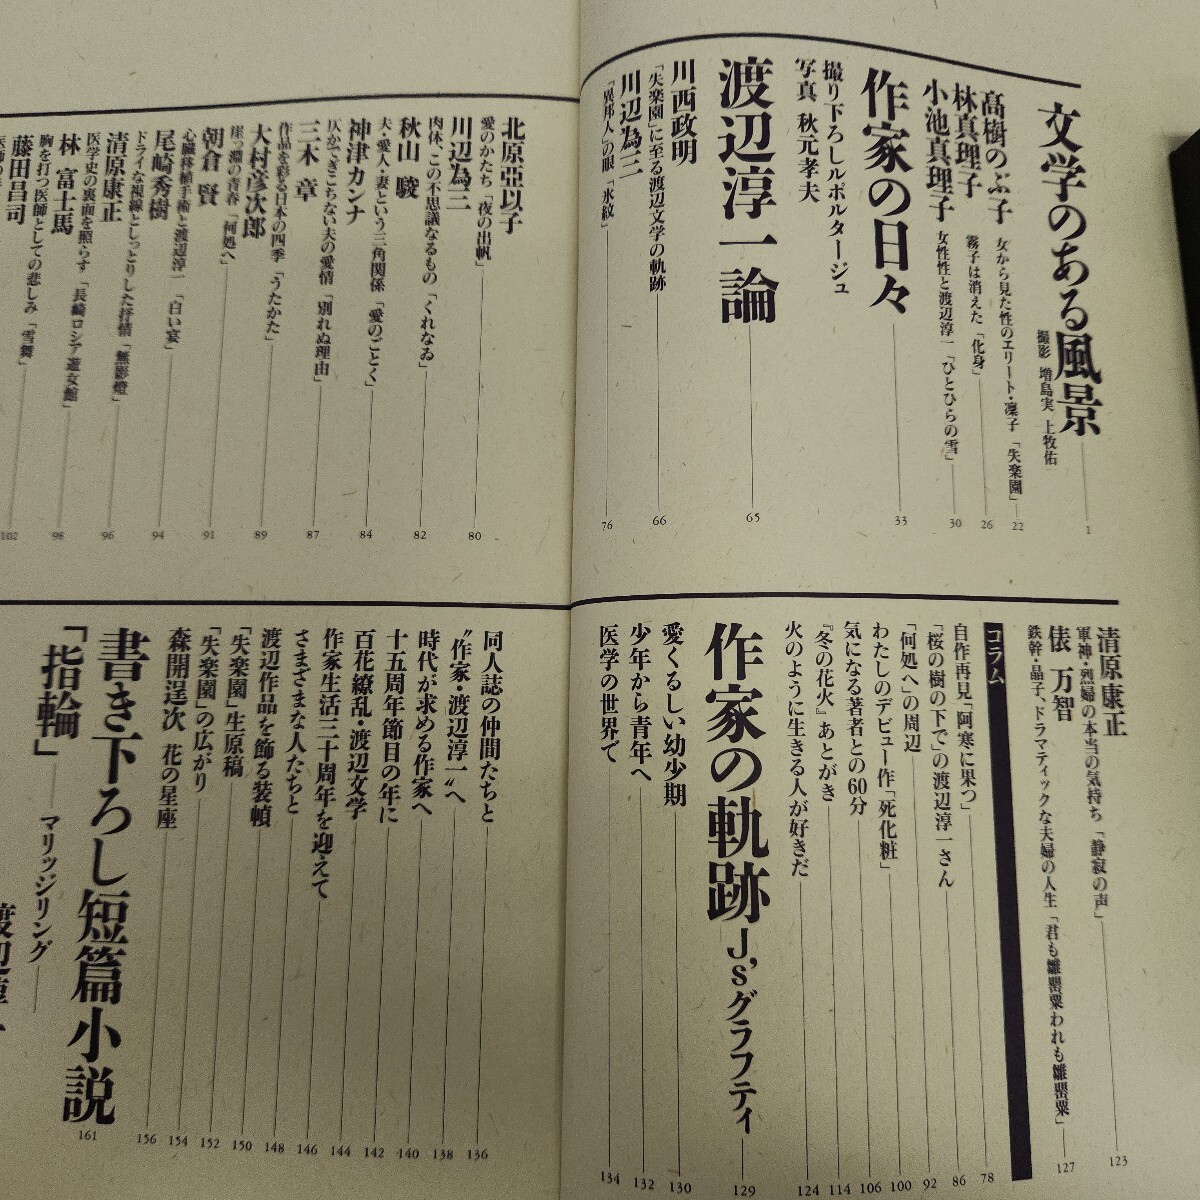 文学のある風景
撮影 増島実 上牧佑
1
髙樹のぶ子
女から見た性のエリート・凜子「失楽園」
22
林真理子
霧子は消えた「化身」
26
小池真理子
女性性と渡辺淳一「ひとひらの雪」
30
作家の日々
33
撮り下ろしルポルタージュ
写真 秋元孝夫
渡辺淳一論
65
川西政明
「失楽園」に至る渡辺文学の軌跡
66
川辺為三
「異邦人」の眼「氷紋」
76
北原亞以子
愛のかたち「夜の出帆」
80
川辺為三
肉体、この不思議なるもの「くれなゐ」
82
秋山 駿
夫・愛人・妻という三角関係「愛のごとく」
84
神津カンナ
仄かでぎこちない夫の愛情「別れぬ理由」
87
三木 章
作品を彩る日本の四季「うたかた」
89
大村彦次郎
崖っ淵の青春「何処へ」
91
朝倉 賢
心臓移植手術と渡辺淳一「白い宴」
94
尾崎秀樹
ドライな視線としっとりした抒情「無影燈」
96
清原康正
医学史の裏面を照らす「長崎ロシア遊女館」
98
林 富士馬
胸を打つ医師としての悲しみ「雪舞」
102
藤田昌司
清原康正
軍神・烈婦の本当の気持ち「静寂の声」
123
俵 万智
鉄幹・晶子、ドラマティックな夫婦の人生「君も雛罌粟われも雛罌粟」
127
コラム
自作再見「阿寒に果つ」
78
「桜の樹の下で」の渡辺淳一さん
86
「何処へ」の周辺
92
わたしのデビュー作「死化粧」
100
気になる著者との60分
106
『冬の花火』あとがき
114
火のように生きる人が好きだ
124
作家の軌跡 J'sグラフティ
129
愛くるしい幼少期
130
少年から青年へ
132
医学の世界で
134
同人誌の仲間たちと
136
〝作家・渡辺淳一〟へ
138
時代が求める作家へ
140
十五周年節目の年に
142
百花繚乱・渡辺文学
144
作家生活三十周年を迎えて
146
さまざまな人たちと
148
渡辺作品を飾る装幀
150
「失楽園」生原稿
152
「失楽園」の広がり
154
森開逞次 花の星座
156
書き下ろし短篇小説
161
「指輪」
マリッジリング